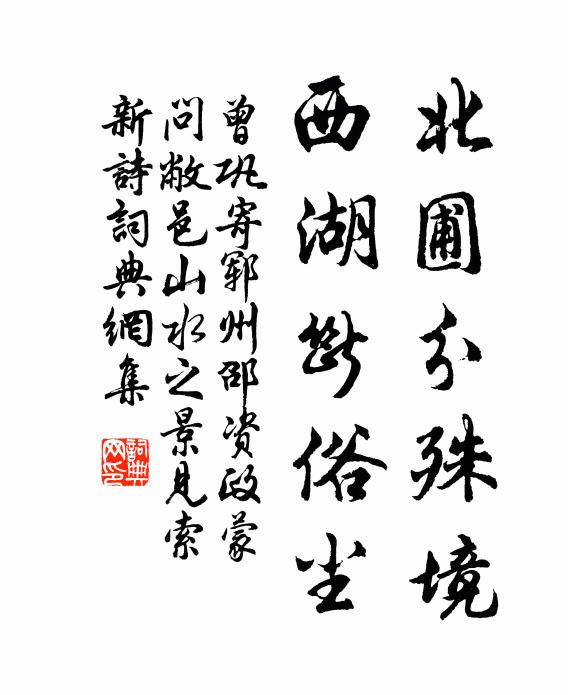 北圃分殊境
西湖断俗尘
曾巩寄鄆州邵资政蒙
問敝邑山水之景见索
新詩詞典網集
詞典
网印